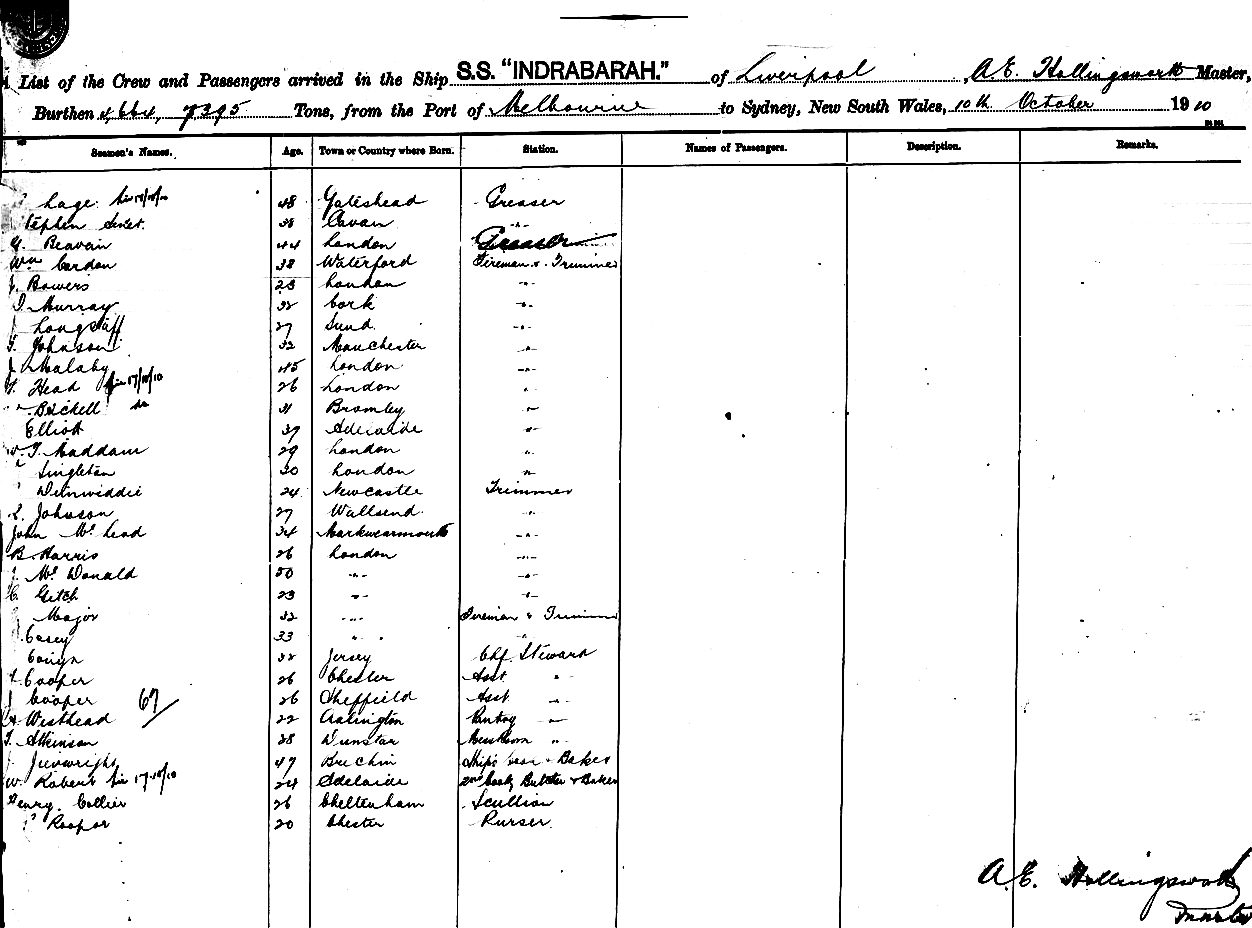 List of the Crew and Passengers arrived in the Ship S.S. "INDRABARAH." of Liverpool, A.E. Hollingsworth Master,
Burthen 4664, 7395 Tons, from the Port of Melbourne to Sydney, New South Wales, 10th October 1910
Seamen's Names. Age. Town or Country where Born. Station. Names of Passengers. Description. Remarks.
Lage 48 Gateshead Greaser
Stephen 38 Cavan "
G. Beavain 44 London Greaser
Wm Cardon 38 Waterford Fireman & Trimmer
J. Bowers 23 London "
Murray 32 Cork "
J Longstaff 27 Sund. "
T. Johnson 32 Manchester "
J Malaby 45 London "
Head 17/10/10 26 London "
Bechell do 31 Bromley "
Elliott 37 Adelaide "
T. Maddam 29 London "
Singleton 30 London "
Dunwiddie 24 Newcastle Trimmer
Johnson 27 Wallsend "
John McLeod 34 "
B. Harris 26 London "
J. McDonald 50 " "
C Gitch 23 " "
Major 32 " Fireman & Trimmer
Casey 33 " "
32 Jersey Chf. Steward
Cooper 26 Chester Asst "
J Cooper 67 26 Sheffield Asst "
Westhead 22 Pantry "
T. Atkinson 28 Dunstar Mess Room "
47 Brechin Ship's Baker
W. Robert 17/10/10 24 Adelaide 2nd Cook, Butcher & Baker
Henry Collier 26 Cheltenham Scullion
Rooper 20 Chester Purser
A.E. Hollingsworth
Master